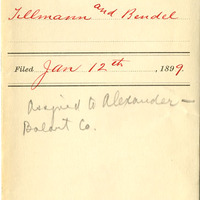 Tillmann and Bendel
Filed Jan 12th, 1899.
Assigned to Alexander—
Balart Co.